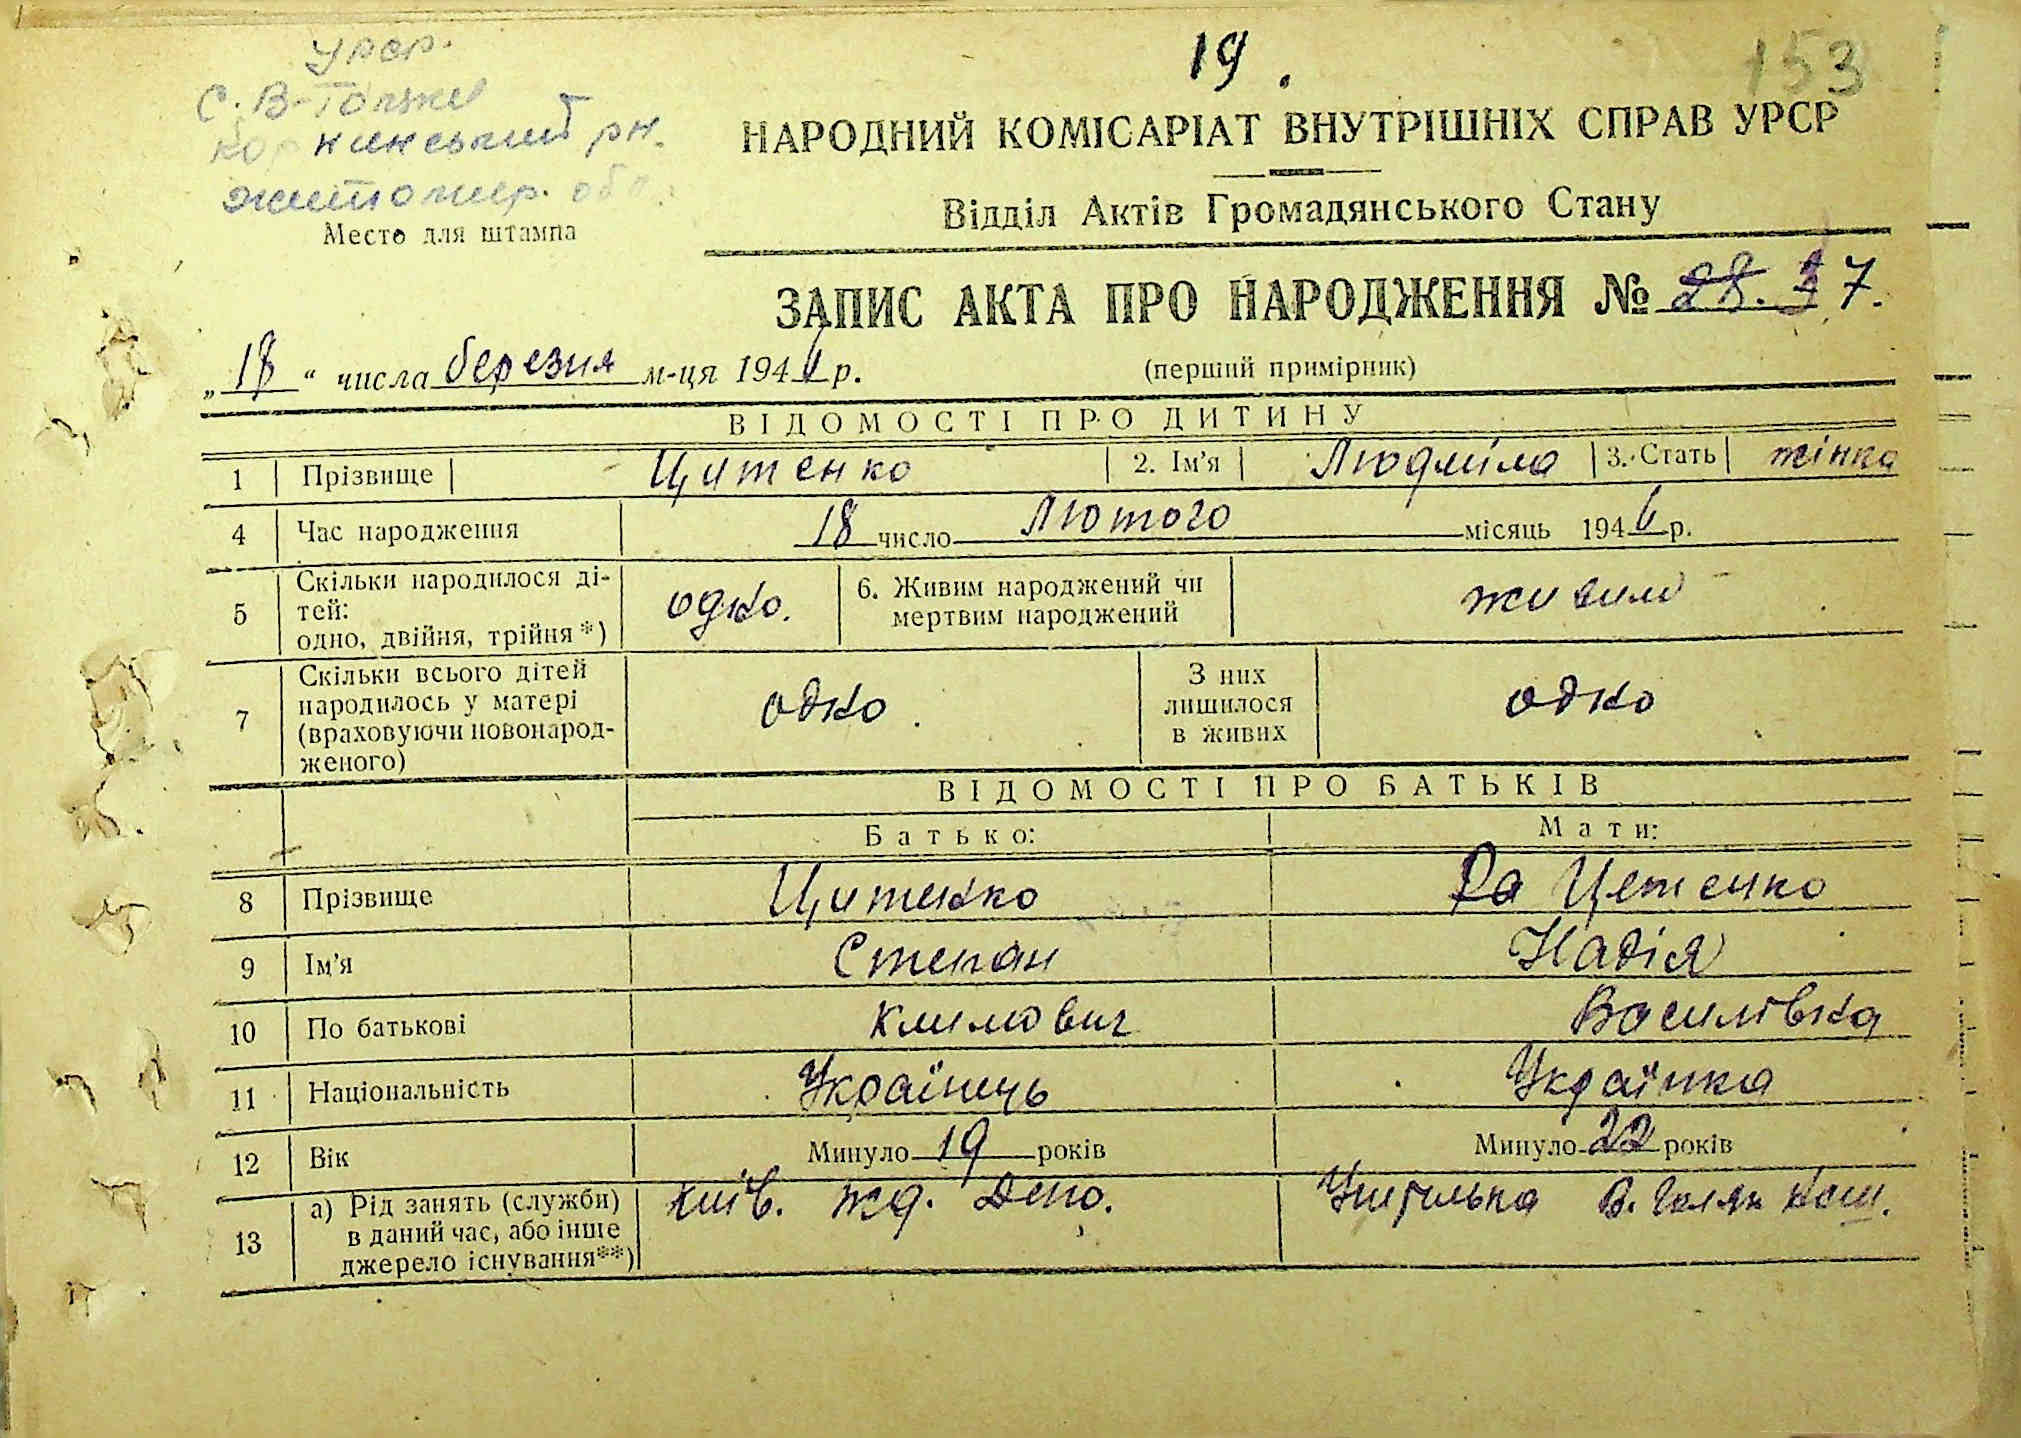 19.
153
УРСР.
С. В-Голяки
Корнинський рн.
Житомир. обл.
Место для штампа
НАРОДНИЙ КОМІСАРІАТ ВНУТРІШНІХ СПРАВ УРСР
Відділ Актів Громадянського Стану
ЗАПИС АКТА ПРО НАРОДЖЕННЯ № 7.
„18“ числа березня м-ця 194 р.
(перший примірник)
ВІДОМОСТІ ПРО ДИТИНУ
1 Прізвище Цитенко 2. Ім’я Людміла 3. Стать жінка
4 Час народження 18 число Лютого місяць 194 р.
5 Скільки народилося ді-
тей:
одно, двійня, трійня*) одно.
6. Живим народжений чи
мертвим народжений живим
7 Скільки всього дітей
народилось у матері
(враховуючи новонарод-
женого) одно.
З них
лишилося
в живих одно
ВІДОМОСТІ ПРО БАТЬКІВ
Батько: Мати:
8 Прізвище Цитенко Цетенко
9 Ім’я Степан Надія
10 По батькові Климович Василівна
11 Національність Українець Українка
12 Вік Минуло 19 років Минуло 22 років
13 а) Рід занять (служби)
в даний час, або інше
джерело існування**) Київ. жд. Депо. Учителька В. Голяк